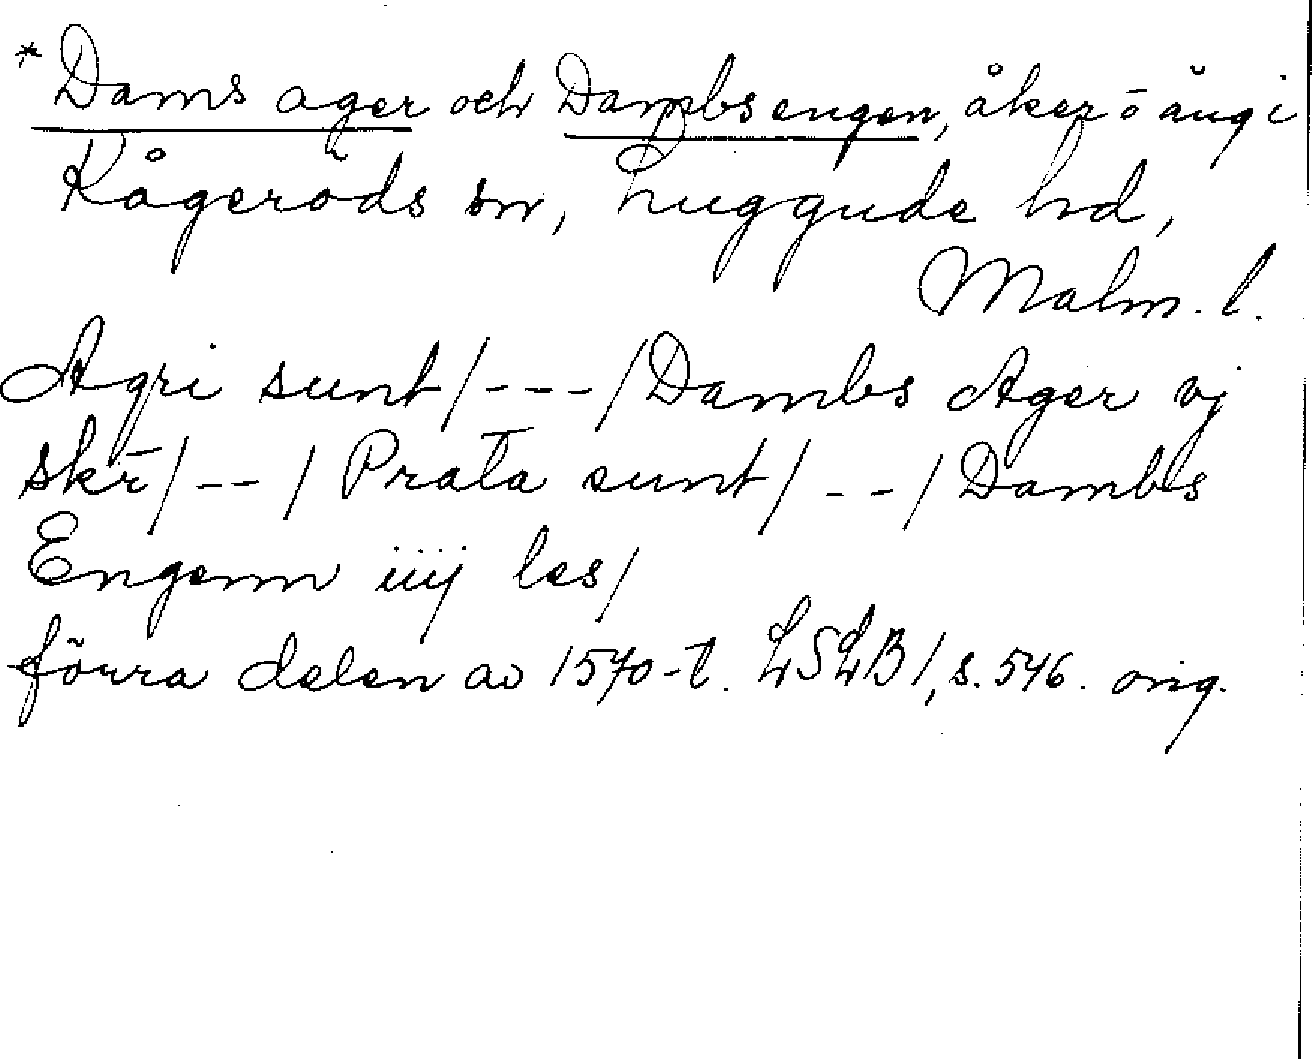 * Dams ager och Dambsengen, åker o äng i
Kågeröds sn, Luggude hd,
Malm. l.
Agri sunt/---/Dambs Ager vj
skr̄/--/ Prata sunt/--/Dambs
Engenn iiij les/
förra delen av 1570-t. LSLB1, s. 546. orig.